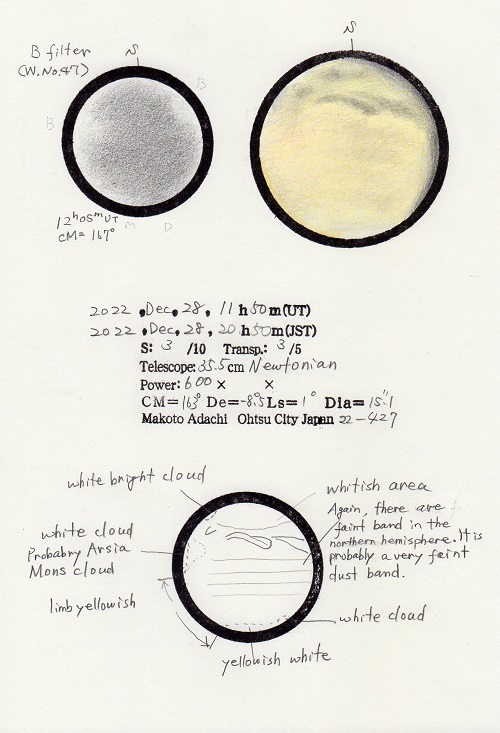 B filter
(W.No.47)
S
S
B
B
12h05mUT
CM=167°
M
D
2022 , Dec, 28, 11 h 50 m (UT)
2022 , Dec, 28, 20 h 50 m (JST)
S: 3 /10 Transp.: 3 /5
Telescope: 35.5 cm Newtonian
Power: 600 × ×
CM=163° De=-8.°5 Ls=1° Dia=15."1
Makoto Adachi Ohtsu City Japan 22-427
white bright cloud
white cloud
Probabry Arsia
Mons cloud
limb yellowish
whitish area
Again, there are
faint band in the
northern hemisphere. It is
probably a very feint
dust band.
white cloud
yellowish white